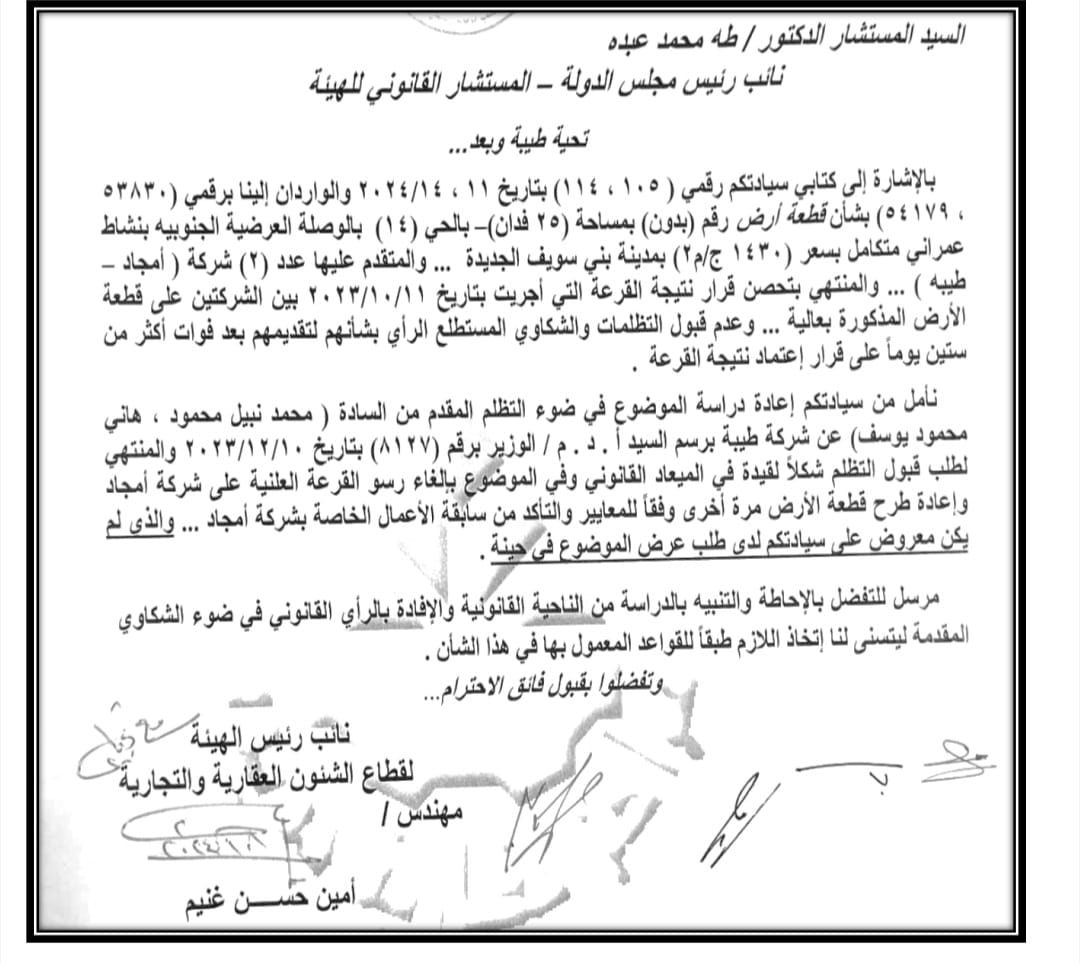 السيد المستشار الدكتور / طه محمد عبده
نائب رئيس مجلس الدولة – المستشار القانوني للهيئة
تحية طيبة وبعد...
بالإشارة إلى كتابي سيادتكم رقمي ( ١٠٥ ، ١١٤) بتاريخ ١١ ، ٢٠٢٤/١٤ والواردان إلينا برقمي (٥٣٨٣٠
، ٥٤١٧٩) بشأن قطعة أرض رقم (بدون) بمساحة (٢٥ فدان)– بالحي (١٤) بالوصلة العرضية الجنوبيه بنشاط
عمراني متكامل بسعر (١٤٣٠ ج/م٢) بمدينة بني سويف الجديدة ... والمتقدم عليها عدد (٢) شركة ( أمجاد –
طيبه ) ... والمنتهي بتحصن قرار نتيجة القرعة التي أجريت بتاريخ ٢٠٢٣/١٠/١١ بين الشركتين على قطعة
الأرض المذكورة بعالية ... وعدم قبول التظلمات والشكاوي المستطلع الرأي بشأنهم لتقديمهم بعد فوات أكثر من
ستين يوماً على قرار إعتماد نتيجة القرعة .
نأمل من سيادتكم إعادة دراسة الموضوع في ضوء التظلم المقدم من السادة ( محمد نبيل محمود ، هاني
محمود يوسف) عن شركة طيبة برسم السيد أ . د . م / الوزير برقم (٨١٢٧) بتاريخ ٢٠٢٣/١٢/١٠ والمنتهي
لطلب قبول التظلم شكلاً لقيدة في الميعاد القانوني وفي الموضوع بإلغاء رسو القرعة العلنية على شركة أمجاد
وإعادة طرح قطعة الأرض مرة أخرى وفقاً للمعايير والتأكد من سابقة الأعمال الخاصة بشركة أمجاد ... والذي لم
يكن معروض على سيادتكم لدى طلب عرض الموضوع في حينة .
مرسل للتفضل بالإحاطة والتنبيه بالدراسة من الناحية القانونية والإفادة بالرأي القانوني في ضوء الشكاوي
المقدمة ليتسنى لنا إتخاذ اللازم طبقاً للقواعد المعمول بها في هذا الشأن .
وتفضلوا بقبول فائق الاحترام...
نائب رئيس الهيئة
لقطاع الشئون العقارية والتجارية
مهندس /
أمين حســـن غنيم